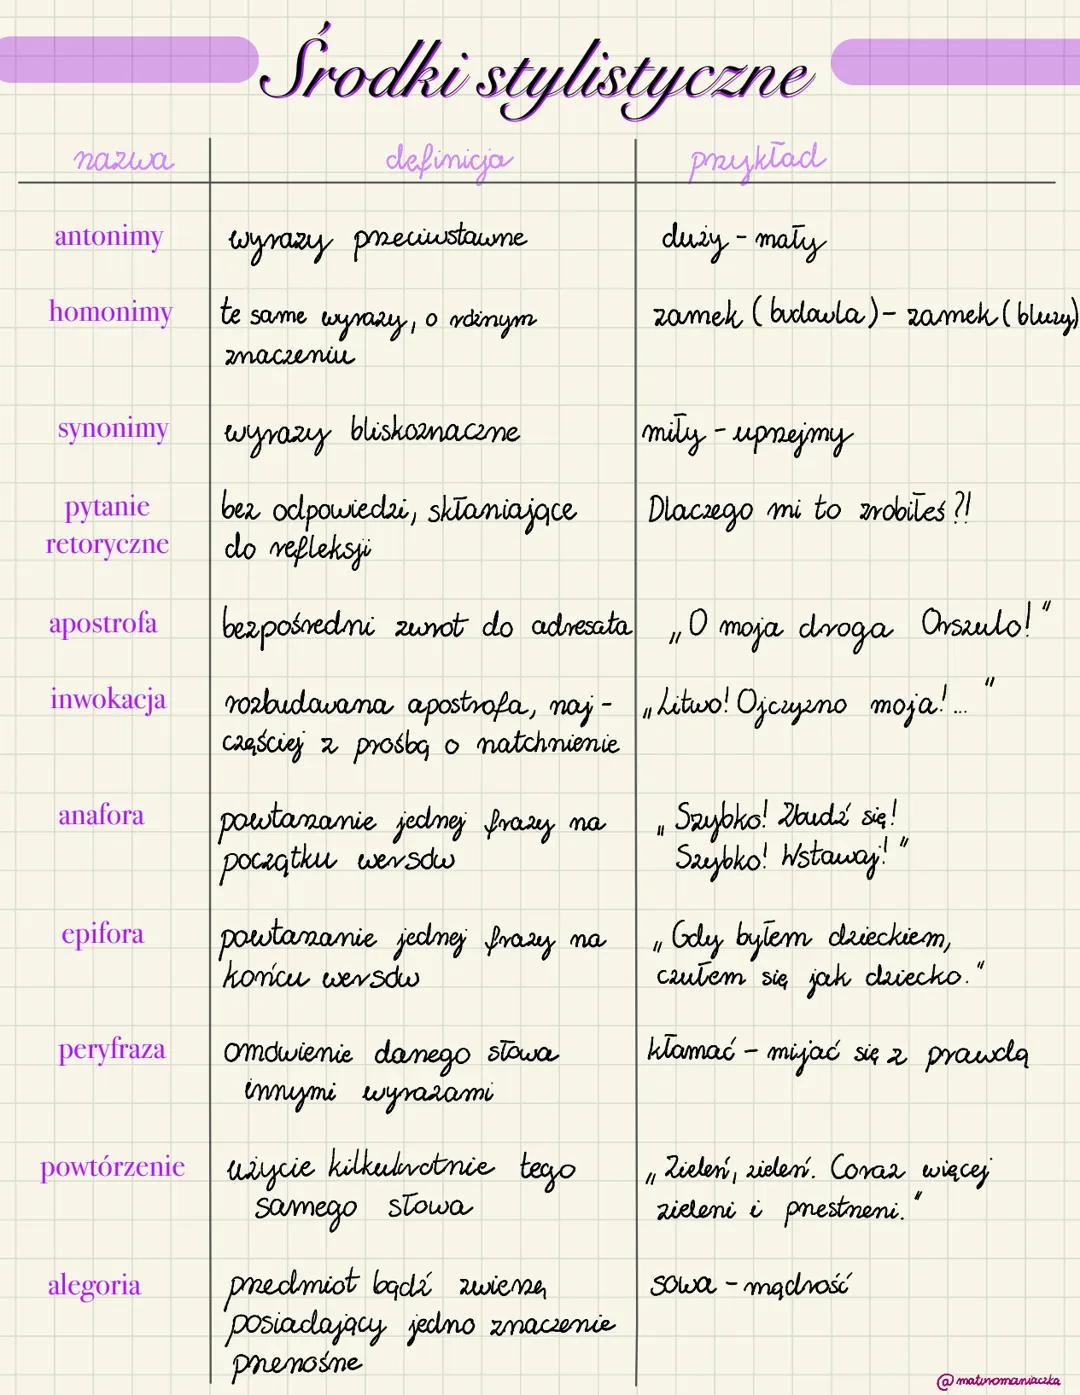 Środki stylistyczne
nazwa definicja przykład
antonimy wyrazy przeciwstawne duży - mały
homonimy te same wyrazy, o różnym zamek (budowla) - zamek (bluzy)
znaczeniu
synonimy wyrazy bliskoznaczne miły - uprzejmy
pytanie bez odpowiedzi, skłaniające Dlaczego mi to zrobiłeś?!
retoryczne do refleksji
apostrofa bezpośredni zwrot do adresata „O moja droga Orszulo!"
inwokacja rozbudowana apostrofa, naj- „Litwo! Ojczyzno moja!..."
częściej z prośbą o natchnienie
anafora powtarzanie jednej frazy na „Szybko! Zbudź się!
początku wersów Szybko! Wstawaj!"
epifora powtarzanie jednej frazy na „Gdy byłem dzieckiem,
końcu wersów czułem się jak dziecko."
peryfraza omówienie danego słowa kłamać - mijać się z prawdą
innymi wyrazami
powtórzenie użycie kilkukrotnie tego „Zieleń, zieleń. Coraz więcej
samego słowa zieleni i przestrzeni."
alegoria przedmiot bądź zwierzę sowa - mądrość
posiadający jedno znaczenie
przenośne
@matinomaniaczka